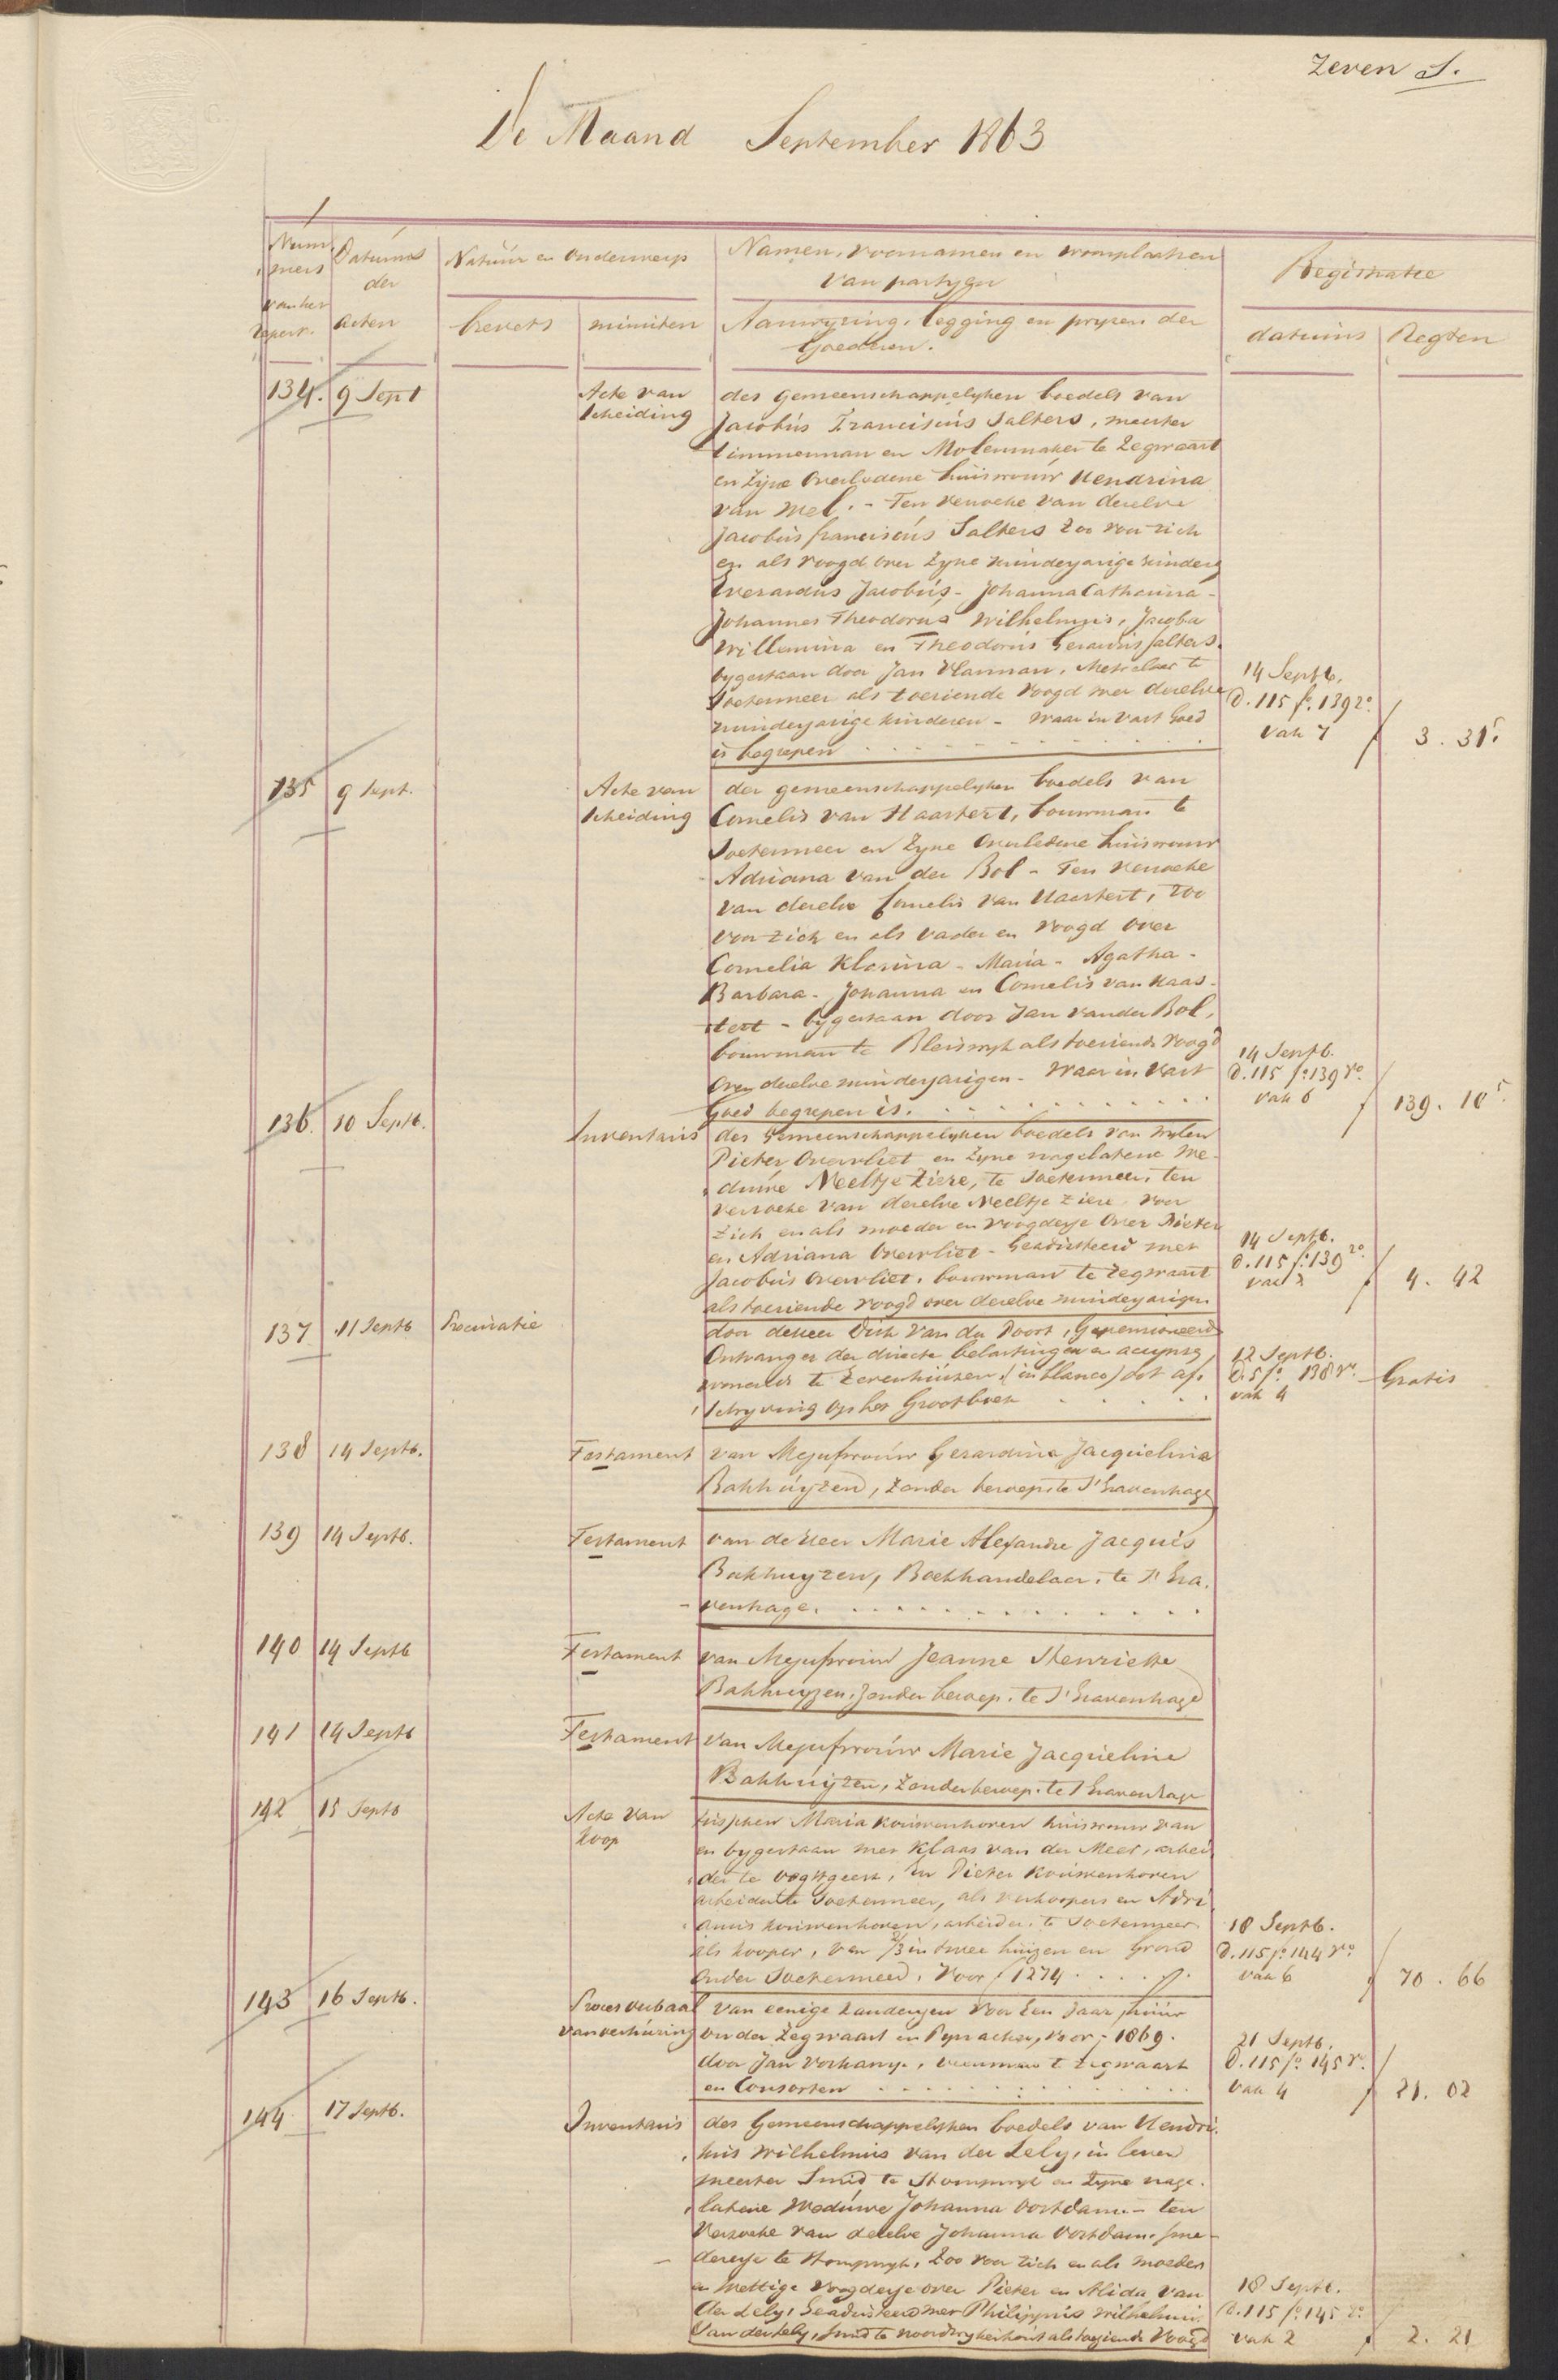 Zeven S.
De Maand September 1863
Nummers van het repert.
Datums der acten
Natuur en Onderwerp
brevets
minuten
Namen, voornamen en woonplaatsen
van partyen
Aanwyzing, legging en pryzen der
Goederen.
Registratie
datums
Regten
134. 9 Sept
Acte van
Scheiding
des gemeenschappelyken boedels van
Jacobus Franciscus Salters, meester
timmerman en Molenmaker te Zegwaart
en Zyne Overledene huisvrouw Hendrina
van Mel. - Ten verzoeke van dezelve
Jacobus franciscus Salters Zoo voor zich
en als voogd over Zyne minderjarige kinders
Everardus Jacobus - Johanna Catharina -
Johannes Theodorus Wilhelmus, Jacoba
Willemina en Theodorus Gerardus Salters.
bygestaan door Jan Vlamman, Metselaar te
Soetermeer als toeziende Voogd over dezelve
minderjarige kinderen - Waar in vast Goed
is begrepen
14 Septb.
D. 115 fo. 139 ro.
vak 7
f 3. 31 5
135 9 Sept.
Acte van
Scheiding
der gemeenschappelyken boedels van
Cornelis van Haastert, bouwman te
Soetermeer en Zyne Overledene huisvrouw
Adriana van der Bol - Ten verzoeke
van dezelve Cornelis van Haastert, zoo
voor zich en als Vader en Voogd over
Cornelia Klasina - Maria - Agatha -
Barbara - Johanna en Cornelis van Haas-
tert - bygestaan door Jan van der Bol,
bouwman te Bleiswyk als toeziende Voogd
Over dezelve minderjarigen - Waar in Vast
Goed begrepen is.
14 Septb.
D. 115 fo. 139 ro.
vak 6
f 139. 10 5
136. 10 Septb.
Inventaris
des Gemeenschappelyken boedels van wylen
Pieter Overvliet en Zyne nagelatene We-
duwe Neeltje Ziere, te Soetermeer, ten
verzoeke van dezelve Neeltje Ziere voor
Zich en als moeder en Voogdesse Over Pieter
en Adriana Overvliet - Geadsisteerd met
Jacobus Overvliet, bouwman te Zegwaart
als toeziende voogd over dezelve minderjarigen
14 Septb.
D. 115 fo. 139 ro.
vak 2
f 4. 42
137 11 Septb
Procuratie
door de Heer Dirk van der Poort, Gepensioneerd
Ontvanger der directe belastingen en accynsen,
wonende te Zevenhuizen (in blanco) tot af-
schryving op het Grootboek
12 Septb.
D. 5 fo. 138 ro.
vak 4
Gratis
138 14 Septb.
Testament
van Mejufvrouw Gerardina Jacquelina
Bakhuyzen, Zonder beroep te S'Gravenhage
139 14 Septb.
Testament
van de Heer Marie Alexandre Jacques
Bakhuyzen, Boekhandelaar, te S'Gra-
venhage.
140 14 Septb
Testament
van Mejufvrouw Jeanne Henriette
Bakhuyzen, Zonder beroep, te S'Gravenhage
141 14 Septb
Testament
van Mejufvrouw Marie Jacqueline
Bakhuyzen, Zonder beroep, te S'Gravenhage
142 15 Septb
Acte van
Koop
tusschen Maria Kouwenhoven huisvrouw van
en bygestaan met Klaas van der Meer, arbei-
der te Oegstgeest, en Pieter Kouwenhoven
arbeider te Soetermeer, als verkoopers en Adri-
anus Kouwenhoven, arbeider te Soetermeer
als kooper, van 2/3 in twee huizen en Grond
onder Soetermeer. Voor f 1274
18 Septb.
D. 115 fo. 144 ro.
vak 6
f 70. 66
143 16 Septb.
Proces verbaal
van verhuring
van eenige Landeryen Voor Een Jaar, huur
onder Zegwaart en Pynacker, voor f 1069.
door Jan Vorkamp, veenman te Zegwaart
en Consorten
21 Septb.
D. 115 fo. 145 ro.
vak 4
f 21. 02
144 17 Septb.
Inventaris
des Gemeenschappelyken boedels van Hendri-
kus Wilhelmus van der Lely, in leven
meester Smid te Stompwyk en Zyne nage-
latene Weduwe Johanna Oostdam - ten
Verzoeke van dezelve Johanna Oostdam, sme-
deresse te Stompwyk, Zoo voor Zich en als moeder
en Wettige Voogdesse over Pieter en Alida van
der Lely, Geadsisteerd met Philippus Wilhelmus
van der Lely, Smid te Noordwykerhout als toeziende Voogd
18 Septb.
D. 115 fo. 145 ro.
vak 2
f 2. 21